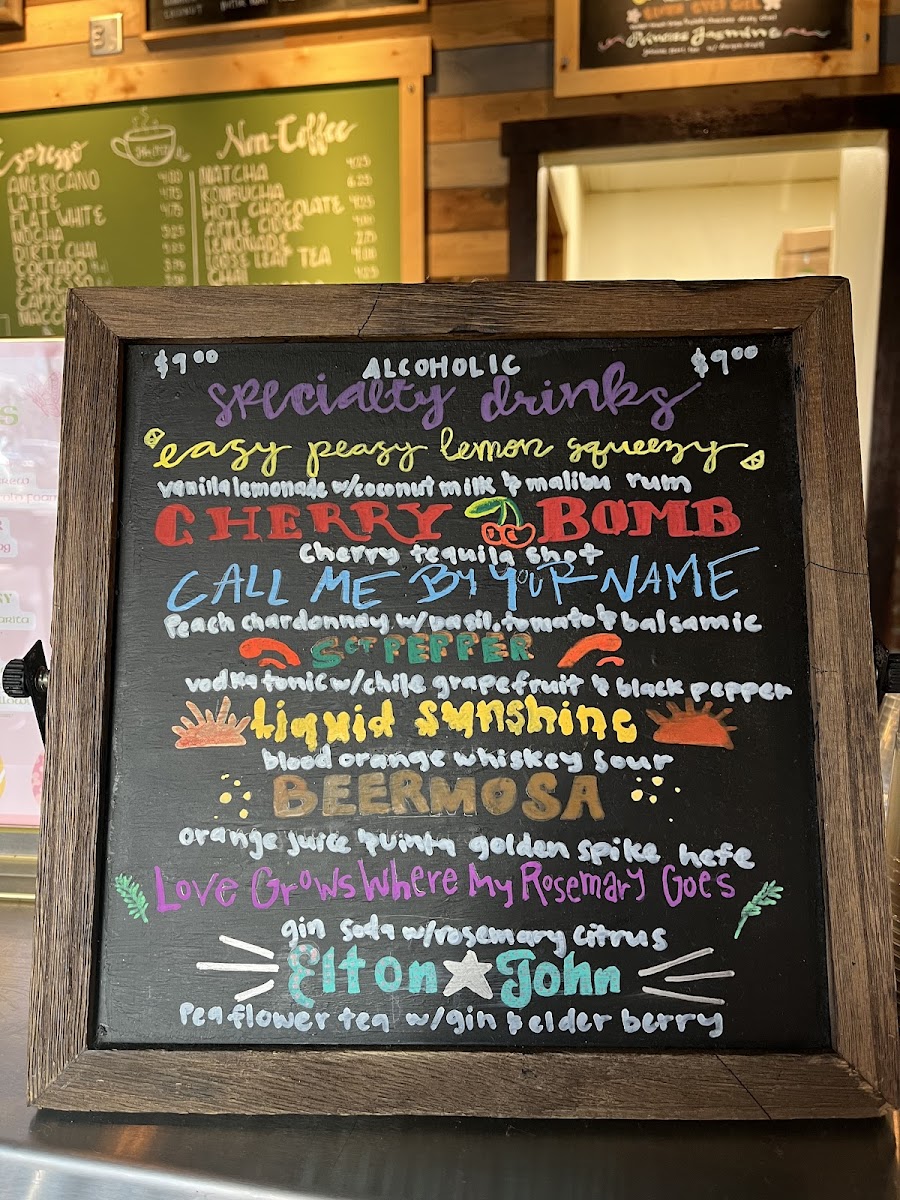 Princess Jasmine
Espresso
AMERICANO
LATTE
FLAT WHITE
MOCHA
DIRTY CHAI
CORTADO
ESPRESSO
Non-Coffee
MATCHA
KOMBUCHA
HOT CHOCOLATE
APPLE CIDER
LEMONADE
LOOSE LEAF TEA
CHAI
$9.00 ALCOHOLIC $9.00
specialty drinks
easy peasy lemon squeezy
vanilla lemonade w/coconut milk & malibu rum
CHERRY BOMB
cherry tequila shot
CALL ME BY YOUR NAME
Peach chardonnay w/basil, tomato & balsamic
SGT PEPPER
vodka tonic w/chile grapefruit & black pepper
Liquid sunshine
blood orange whiskey sour
BEERMOSA
orange juice & uinta golden spike hefe
Love Grows Where My Rosemary Goes
gin soda w/rosemary citrus
Elton John
Pea flower tea w/gin & elder berry